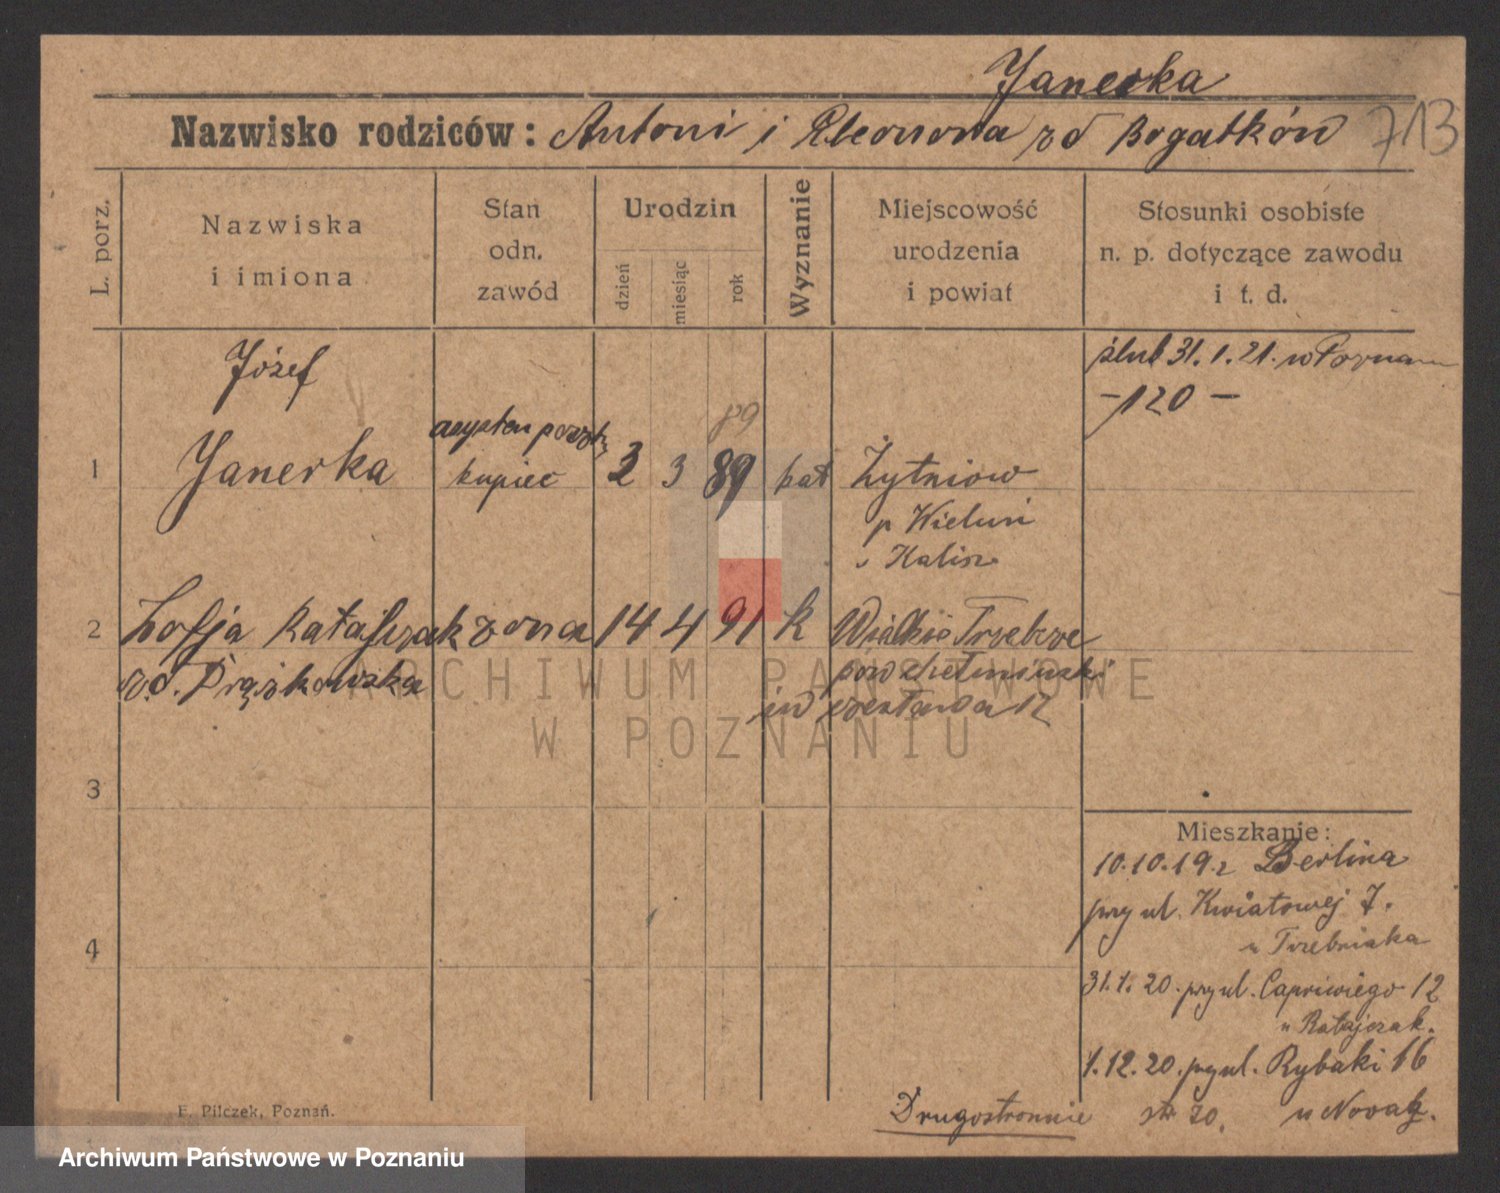 Janerka
Nazwisko rodziców: Antoni i Eleonora z d Bogatków 713
L. porz.
Nazwiska
i imiona
Stan
odn.
zawód
Urodzin
dzień
miesiąc
rok
Wyznanie
Miejscowość
urodzenia
i powiat
Stosunki osobiste
n. p. dotyczące zawodu
i t. d.
ślub 31.1.21. w Poznan
-120-
Józef
89
1 Janerka kupiec 3 89 kat Żytniow
p Wieluń
Kalisz
2 Zofja Ratajczak zona 14 4 91 k Wielkie Trzebcze
z d. Prążkowska pow
12
3
Mieszkanie:
10.10.19. z Berlina
przy ul. Kwiatowej 7.
u Trzebniaka
4
31.1.20. przy ul. Capriwiego 12
u Ratajczak.
1.12.20. przy ul. Rybaki 16
Drugostronnie u Novak.
F. Pilczek, Poznań.
ARCHIWUM PAŃSTWOWE
W POZNANIU
Archiwum Państwowe w Poznaniu